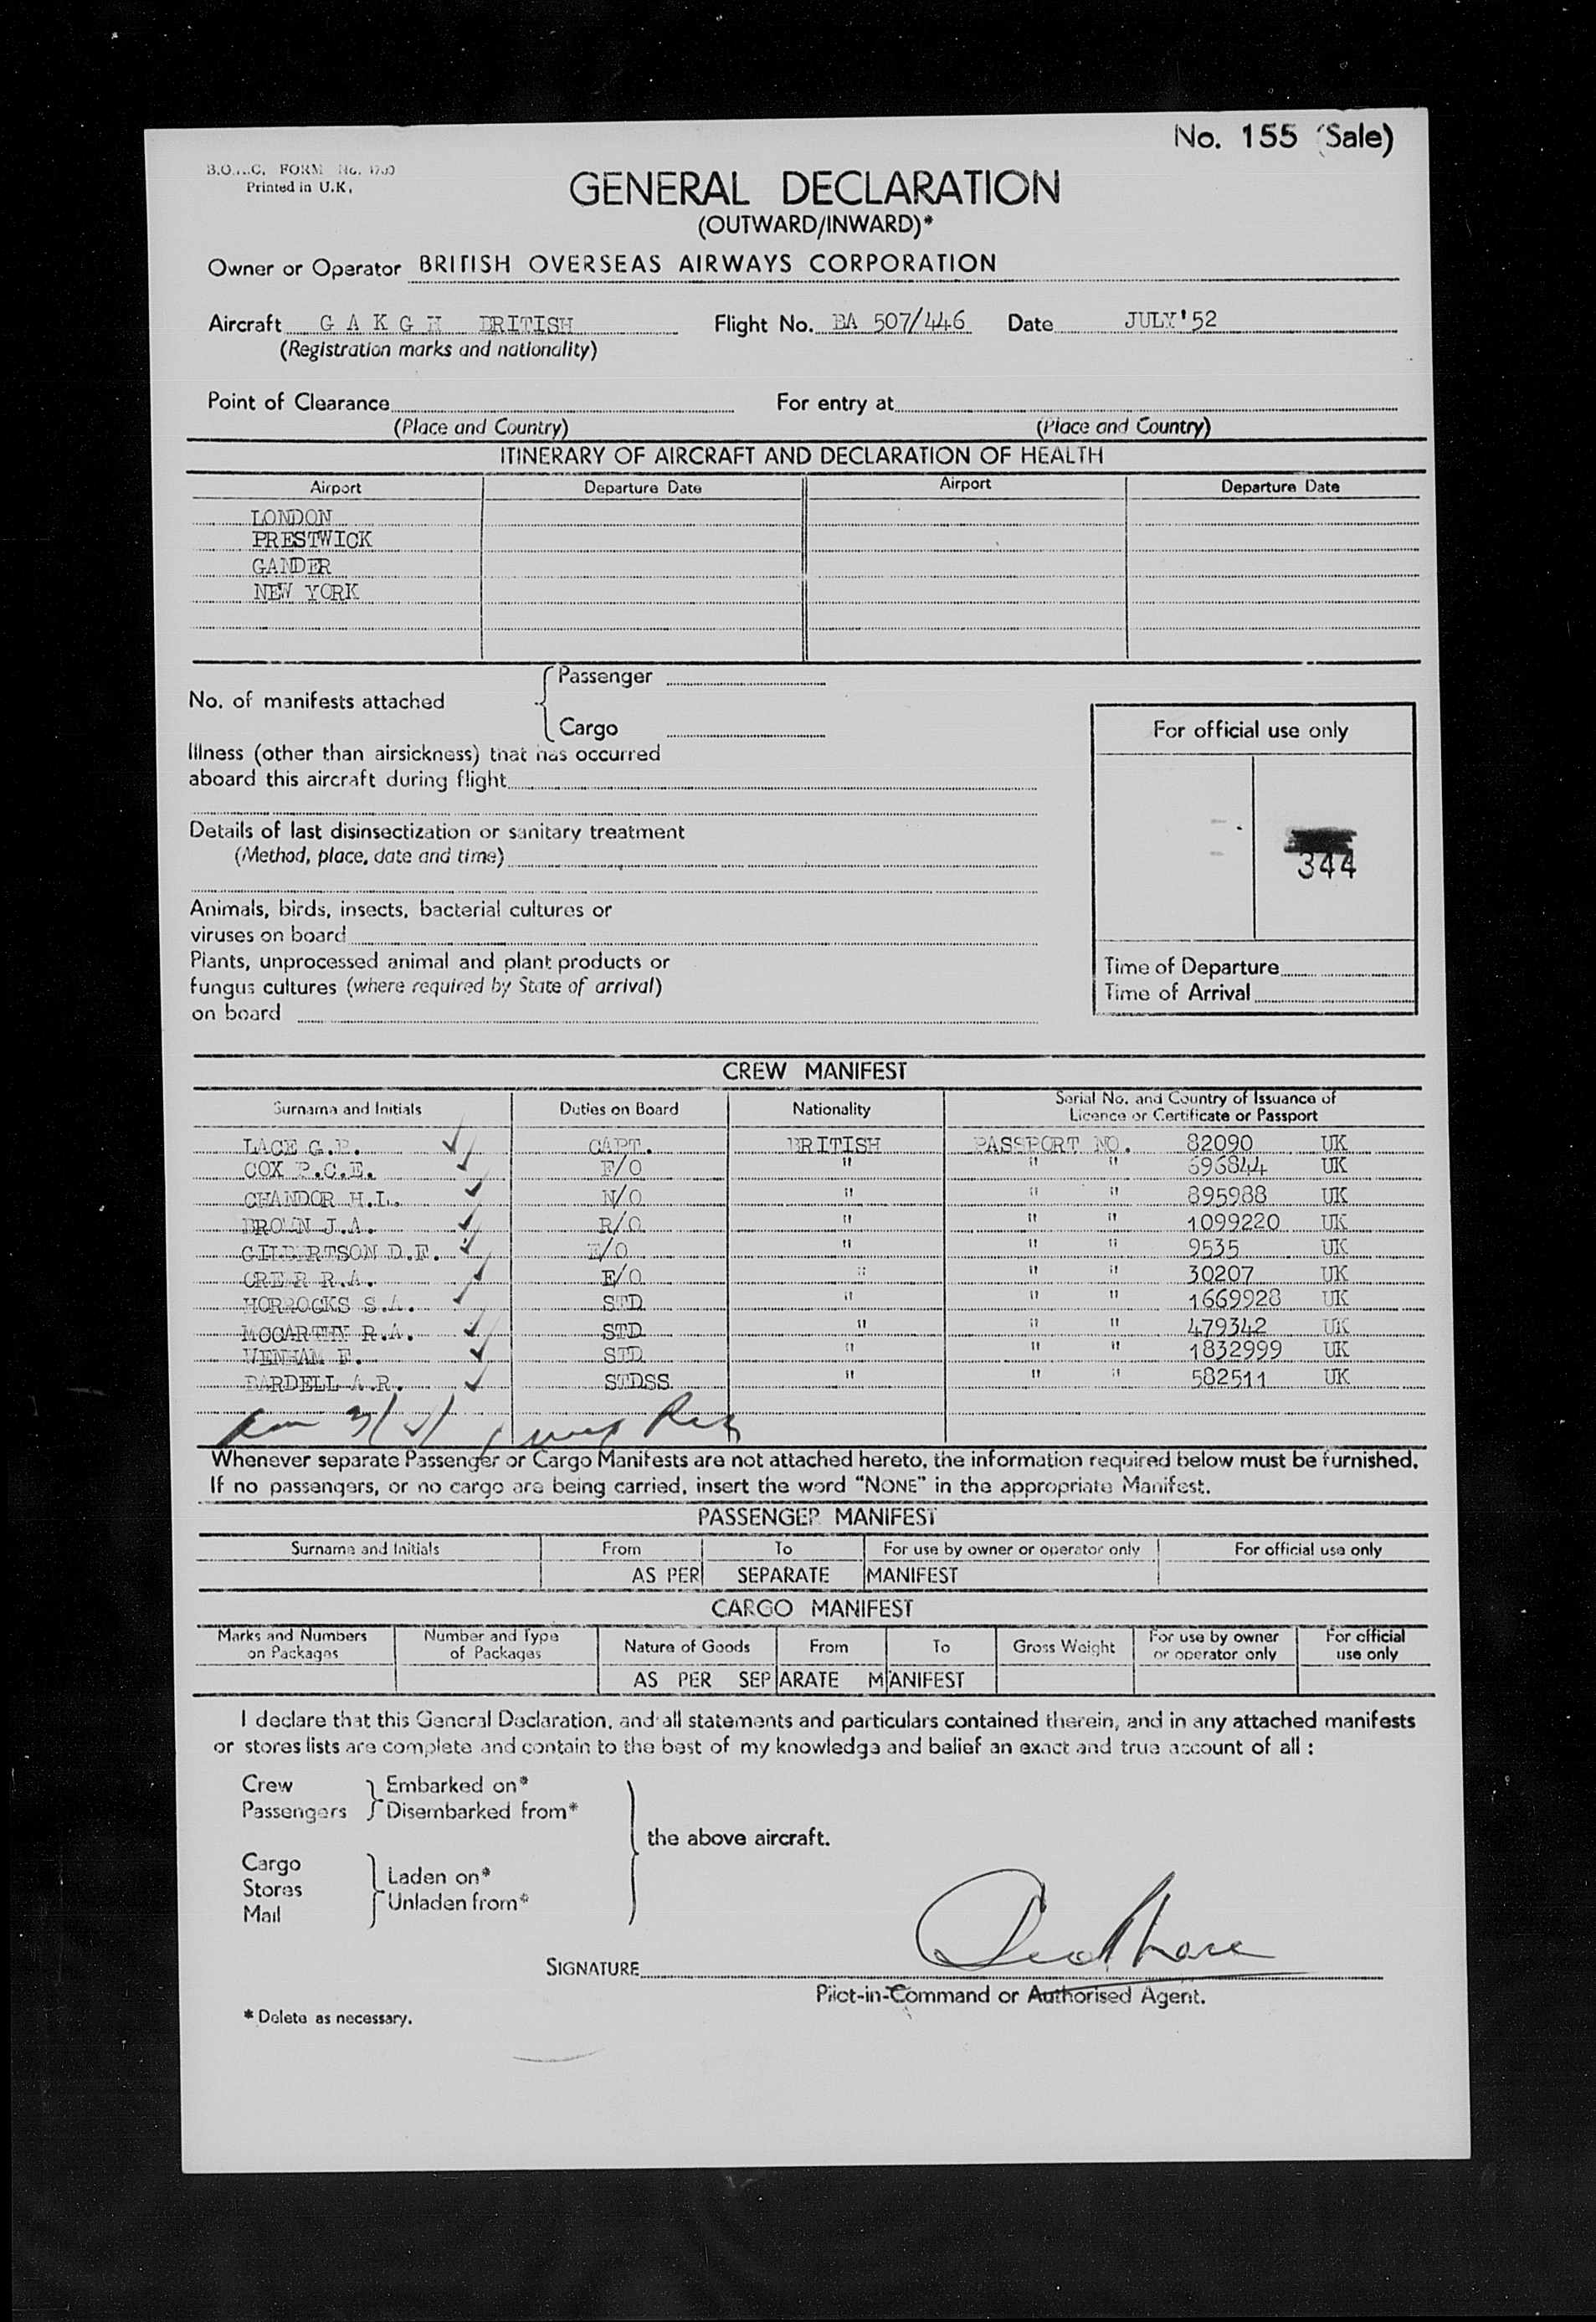 No. 155 (Sale)
B.O.A.C. FORM No.
Printed in U.K.
GENERAL DECLARATION
(OUTWARD/INWARD)*
Owner or Operator BRITISH OVERSEAS AIRWAYS CORPORATION
Aircraft G A K G H BRITISH Flight No. BA 507/446 Date JULY'52
(Registration marks and nationality)
Point of Clearance For entry at
(Place and Country) (Place and Country)
ITINERARY OF AIRCRAFT AND DECLARATION OF HEALTH
Airport Departure Date Airport Departure Date
LONDON
PRESTWICK
GANDER
NEW YORK
No. of manifests attached
Passenger
Cargo
Illness (other than airsickness) that has occurred
aboard this aircraft during flight
Details of last disinsectization or sanitary treatment
(Method, place, date and time)
Animals, birds, insects, bacterial cultures or
viruses on board
Plants, unprocessed animal and plant products or
fungus cultures (where required by State of arrival)
on board
For official use only
344
Time of Departure
Time of Arrival
CREW MANIFEST
Surname and Initials Duties on Board Nationality Serial No. and Country of Issuance of
Licence or Certificate or Passport
LACE G.P. CAPT. BRITISH PASSPORT NO. 82090 UK
COX P.C.E. F/O " " " 696844 UK
CHANDOR H.L. N/O " " " 895988 UK
BROWN J.A. R/O " " " 1099220 UK
GILBERTSON D.F. E/O " " " 9535 UK
CREAR R.A. E/O " " " 30207 UK
HORROCKS S.A. STD " " " 1669928 UK
MCCARTHY R.A. STD " " " 479342 UK
WENHAM F. STD " " " 1832999 UK
BARDELL A.R. STDSS " " " 582511 UK
Whenever separate Passenger or Cargo Manifests are not attached hereto, the information required below must be furnished.
If no passengers, or no cargo are being carried, insert the word "NONE" in the appropriate Manifest.
PASSENGER MANIFEST
Surname and Initials From To For use by owner or operator only For official use only
AS PER SEPARATE MANIFEST
CARGO MANIFEST
Marks and Numbers on Packages Number and Type of Packages Nature of Goods From To Gross Weight For use by owner or operator only For official use only
AS PER SEPARATE MANIFEST
I declare that this General Declaration, and all statements and particulars contained therein, and in any attached manifests
or stores lists are complete and contain to the best of my knowledge and belief an exact and true account of all :
Crew Embarked on*
Passengers Disembarked from*
the above aircraft.
Cargo
Laden on*
Stores
Unladen from*
Mail
SIGNATURE
Pilot-in-Command or Authorised Agent.
* Delete as necessary.